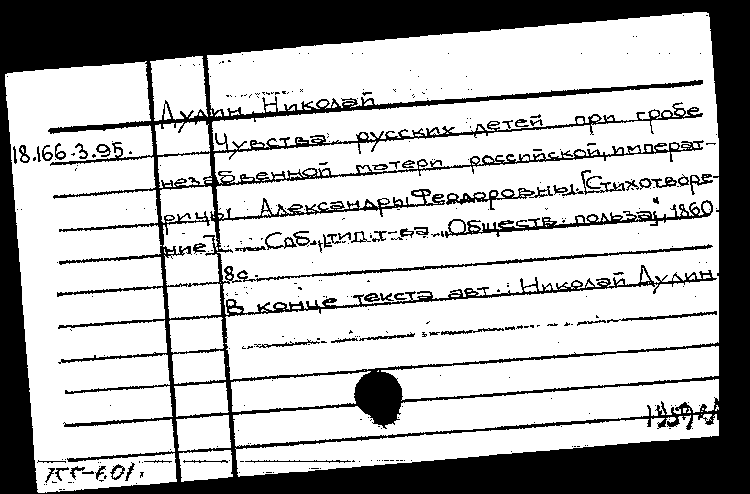 Дулин, Николай
18.166.3.95.
Чувства русских детей при гробе
незабвенной матери российской, императ-
рицы Александры Феодоровны. [Стихотворе-
ние]. Спб., тип. т-ва „Обществ. польза", 1860.
8с.
В конце текста авт.: Николай Дулин.